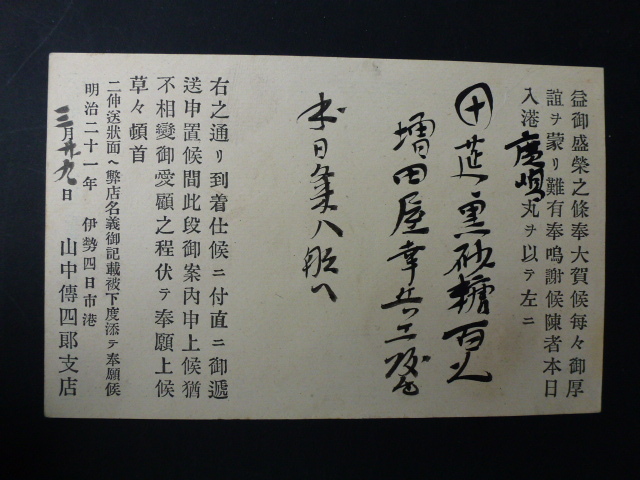 益御盛榮之條奉大賀候毎々御厚
誼ヲ蒙リ難有奉鳴謝候陳者本日
入港廣唄丸ヲ以テ左ニ
黒砂糖百
増田屋幸兵工
本日
八
右之通リ到着仕候ニ付直ニ御遞
送申置候間此段御案内申上候猶
不相變御愛顧之程伏テ奉願上候
草々頓首
二伸送狀面ヘ弊店名義御記載被下度添テ奉願候
明治二十一年 伊勢四日市港
三月廿九日 山中傳四郎支店